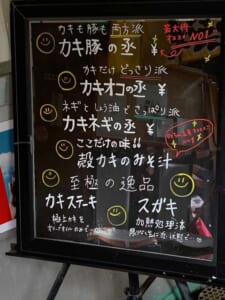 カキも豚も両方派
カキ豚の丞 ¥
NO1
カキだけどっさり派
カキオコの丞 ¥
ネギとしょう油でさっぱり派
カキネギの丞 ¥
ここだけの味!!
殻カキのみそ汁
至極の逸品
カキステーキ
スガキ
加熱処理済